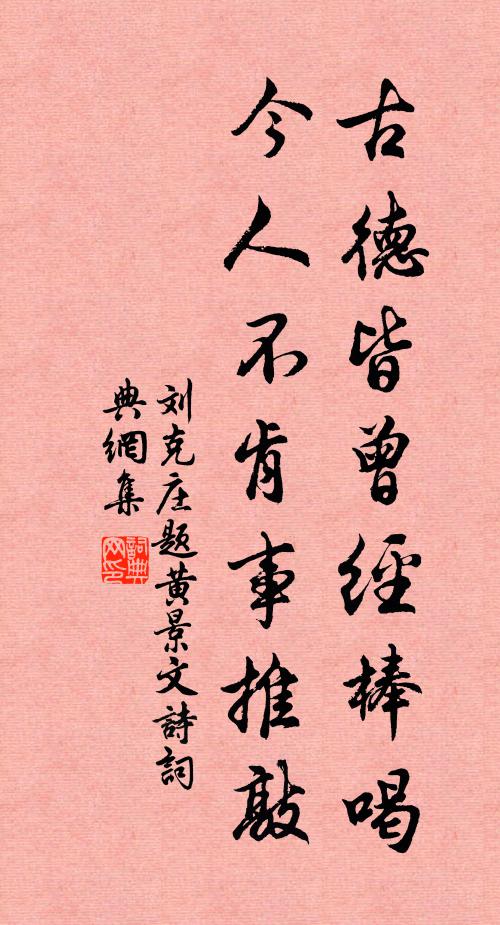 古德皆曾經棒喝
今人不肯事推敲
刘克庄题黄景文詩詞
典網集
詞典網印